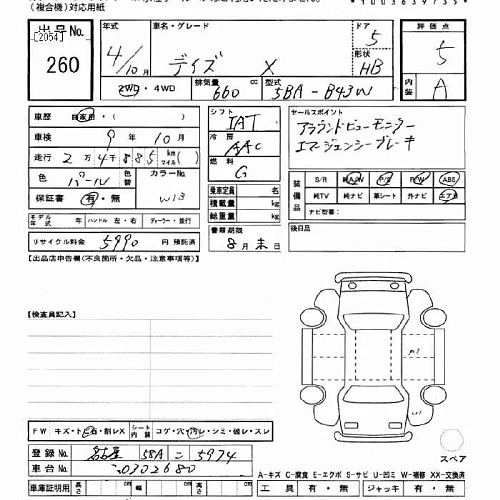 (複合機)対応用紙
*1003639735*
出品No. [2054] 260
年式 4/10月
車名・グレード デイズ X
ドア 5
形状 HB
評価点 5 A
2WD・4WD
排気量 660 cc
型式 5BA-B43W
車歴 自家用・( )
車検 9年10月
走行 2万4千885 km マイル( )
色 パール
色替
カラーNo. W13
保証書 有・無
シフト IAT
冷房 AAC
燃料 G
セールスポイント
アラウンドビューモニター
エマージェンシーブレーキ
乗車定員 名
積載量 kg
総重量 kg
装備品 S/R 純A/W P/S P/W ABS
純TV 純ナビ 革シート 外ナビ エアB
ナビ型番:
モデル年式 年 ハンドル 左・右 ディーラー・並行
書類期限 8月末日
後日品
リサイクル料金 5990 円 預託済
【出品店申告欄(不良箇所・欠品・注意事項等)】
【検査員記入】
FW キズ・ト石・削レX
シート内装 コゲ・穴・汚レ・シミ・破レ・スレ
登録No. 名古屋 58A こ 5974
車台No. 0302680
スペア
A-キズ C-腐食 E-エクボ S-サビ U-凹ミ W-補修 XX-交換済
車庫証明用 長さ cm 幅 cm 高さ cm
工具 有・無 ジャッキ 有・無